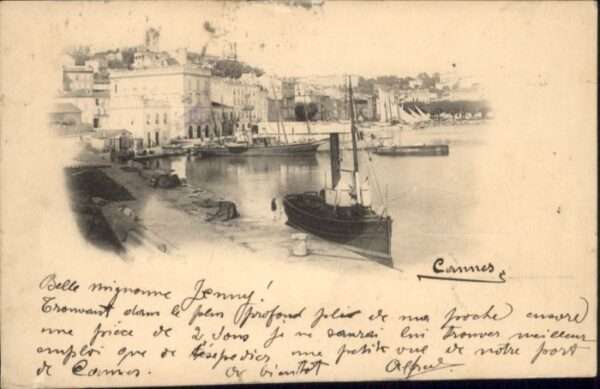 Cannes
Belle mignonne Jenny!
Trouvant dans le plus profond pli de ma poche encore
une pièce de 2 sous je ne saurai lui trouver meilleur
emploi que de t'éxpedier une petite vue de notre port
de Cannes. à bientôt Alfred